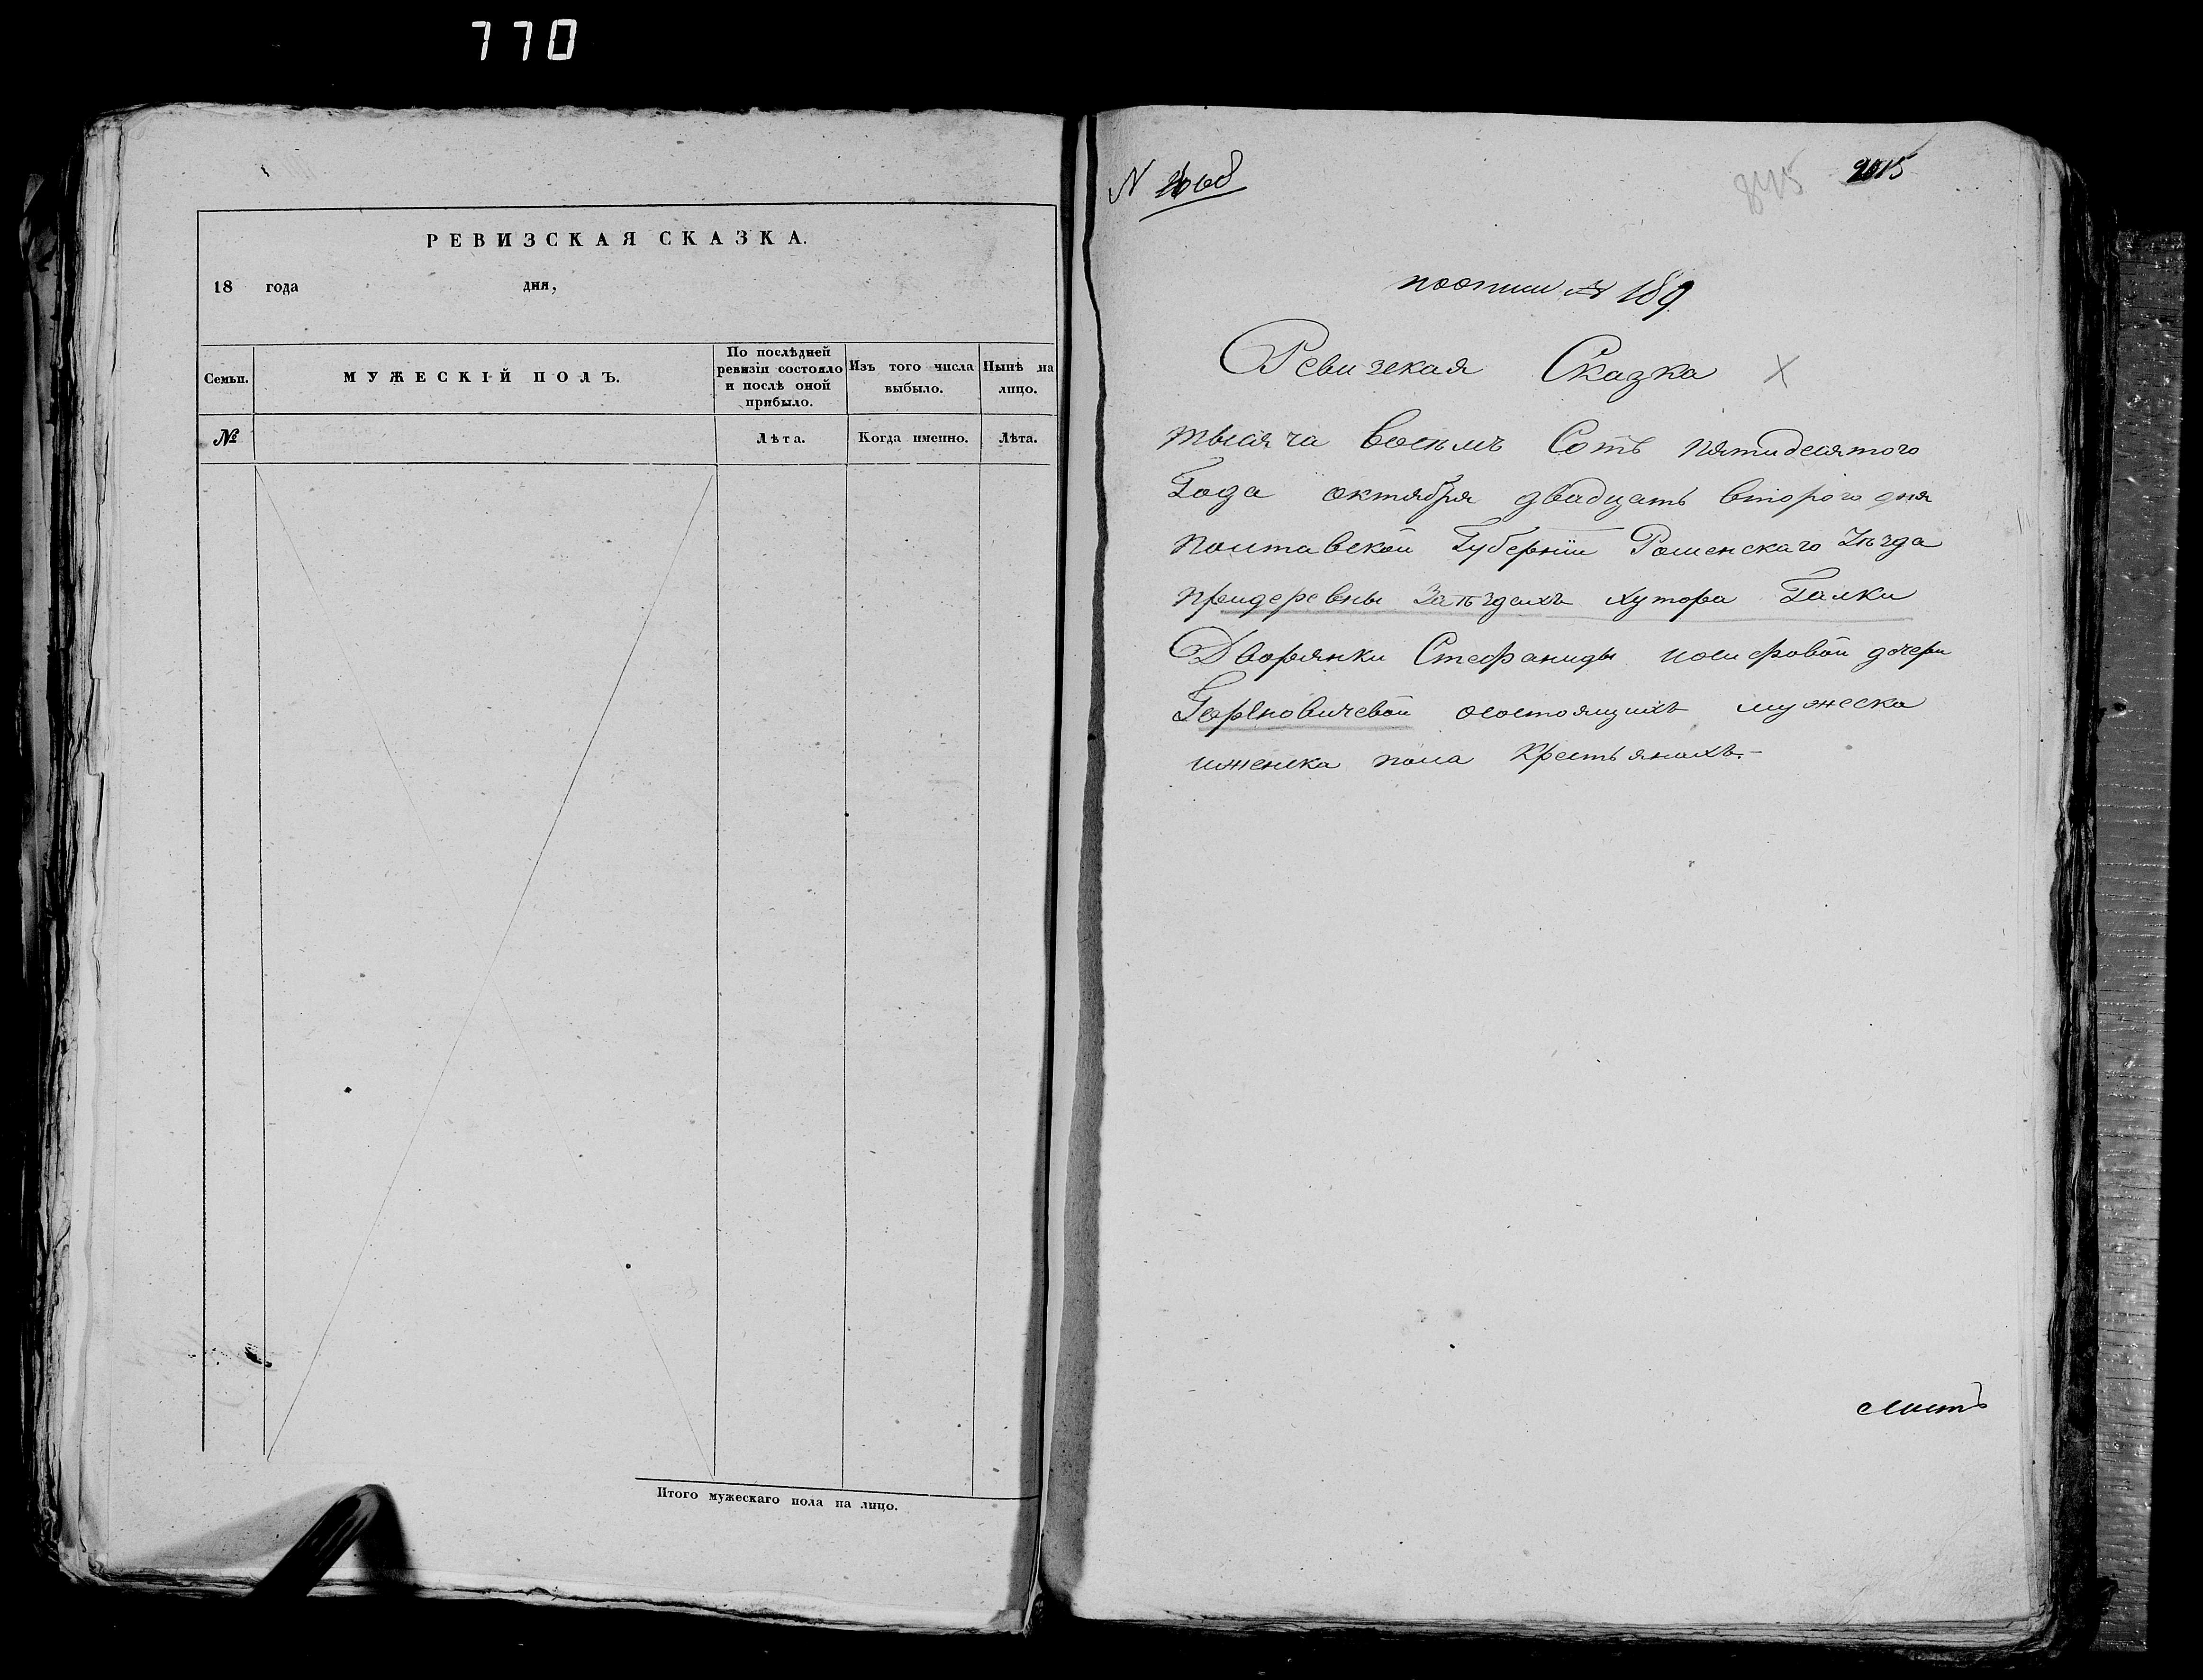 770
РЕВИЗСКАЯ СКАЗКА.
18 года дня,
Семьи.
МУЖЕСКІЙ ПОЛЪ.
По послѣдней
ревизіи состояло
и послѣ оной
прибыло.
Изъ того числа
выбыло.
Нынѣ на
лицо.
№
Лѣта.
Когда именно.
Лѣта.
Итого мужескаго пола на лицо.
N
845
2015
поописи № 189
Ревизская Сказка
тысяча восемъ Сотъ пятидесятого
Года октября двадцать второго дня
Полтавской Губерніи Роменскаго Уѣзда
придеревны Заѣздахъ хутора Галки
Дворянки Стефаниды иосифовой дочери
осостоящихъ мужеска
иженска пола Крестьянахъ.-
листъ